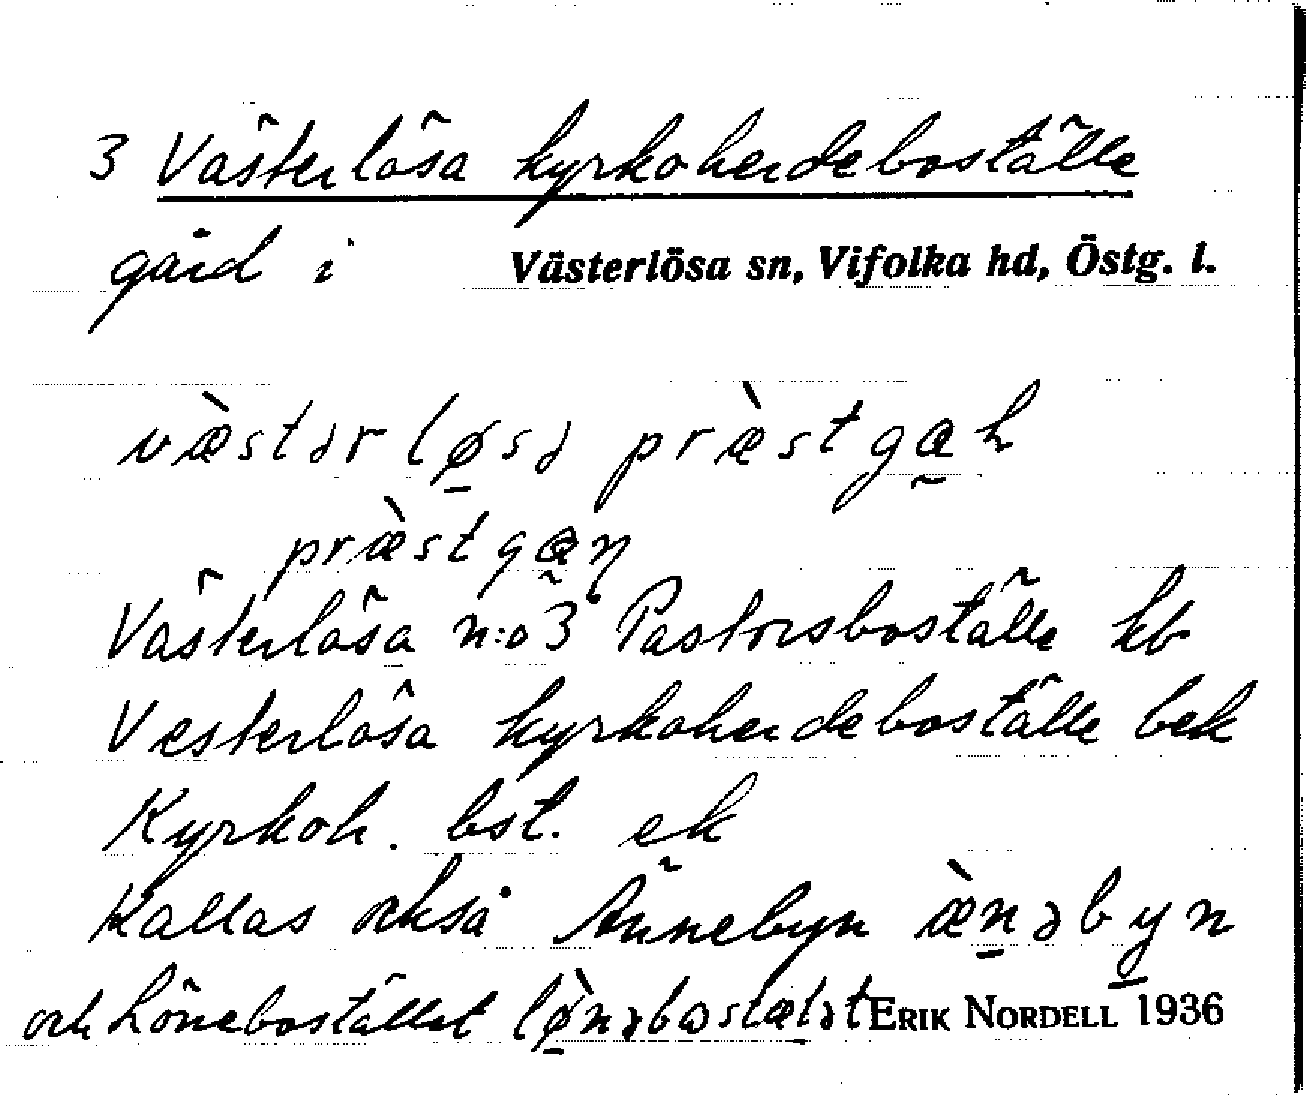 3 Västerlösa kyrkoherdeboställe
gård i Västerlösa sn, Vifolka hd, Östg. l.
væ̀stər lø̱sə præ̀stga̰h
præ̀stga̰ɳ
Västerlösa n:o 3 Pastorsboställe kb
Vesterlösa kyrkoherdeboställe bek
Kyrkoh. bst. ek
Kallas också Ännebyn æ̀ṉəby̱n
och Lönebostället lø̱̀nəbostælət ERIK NORDELL 1936